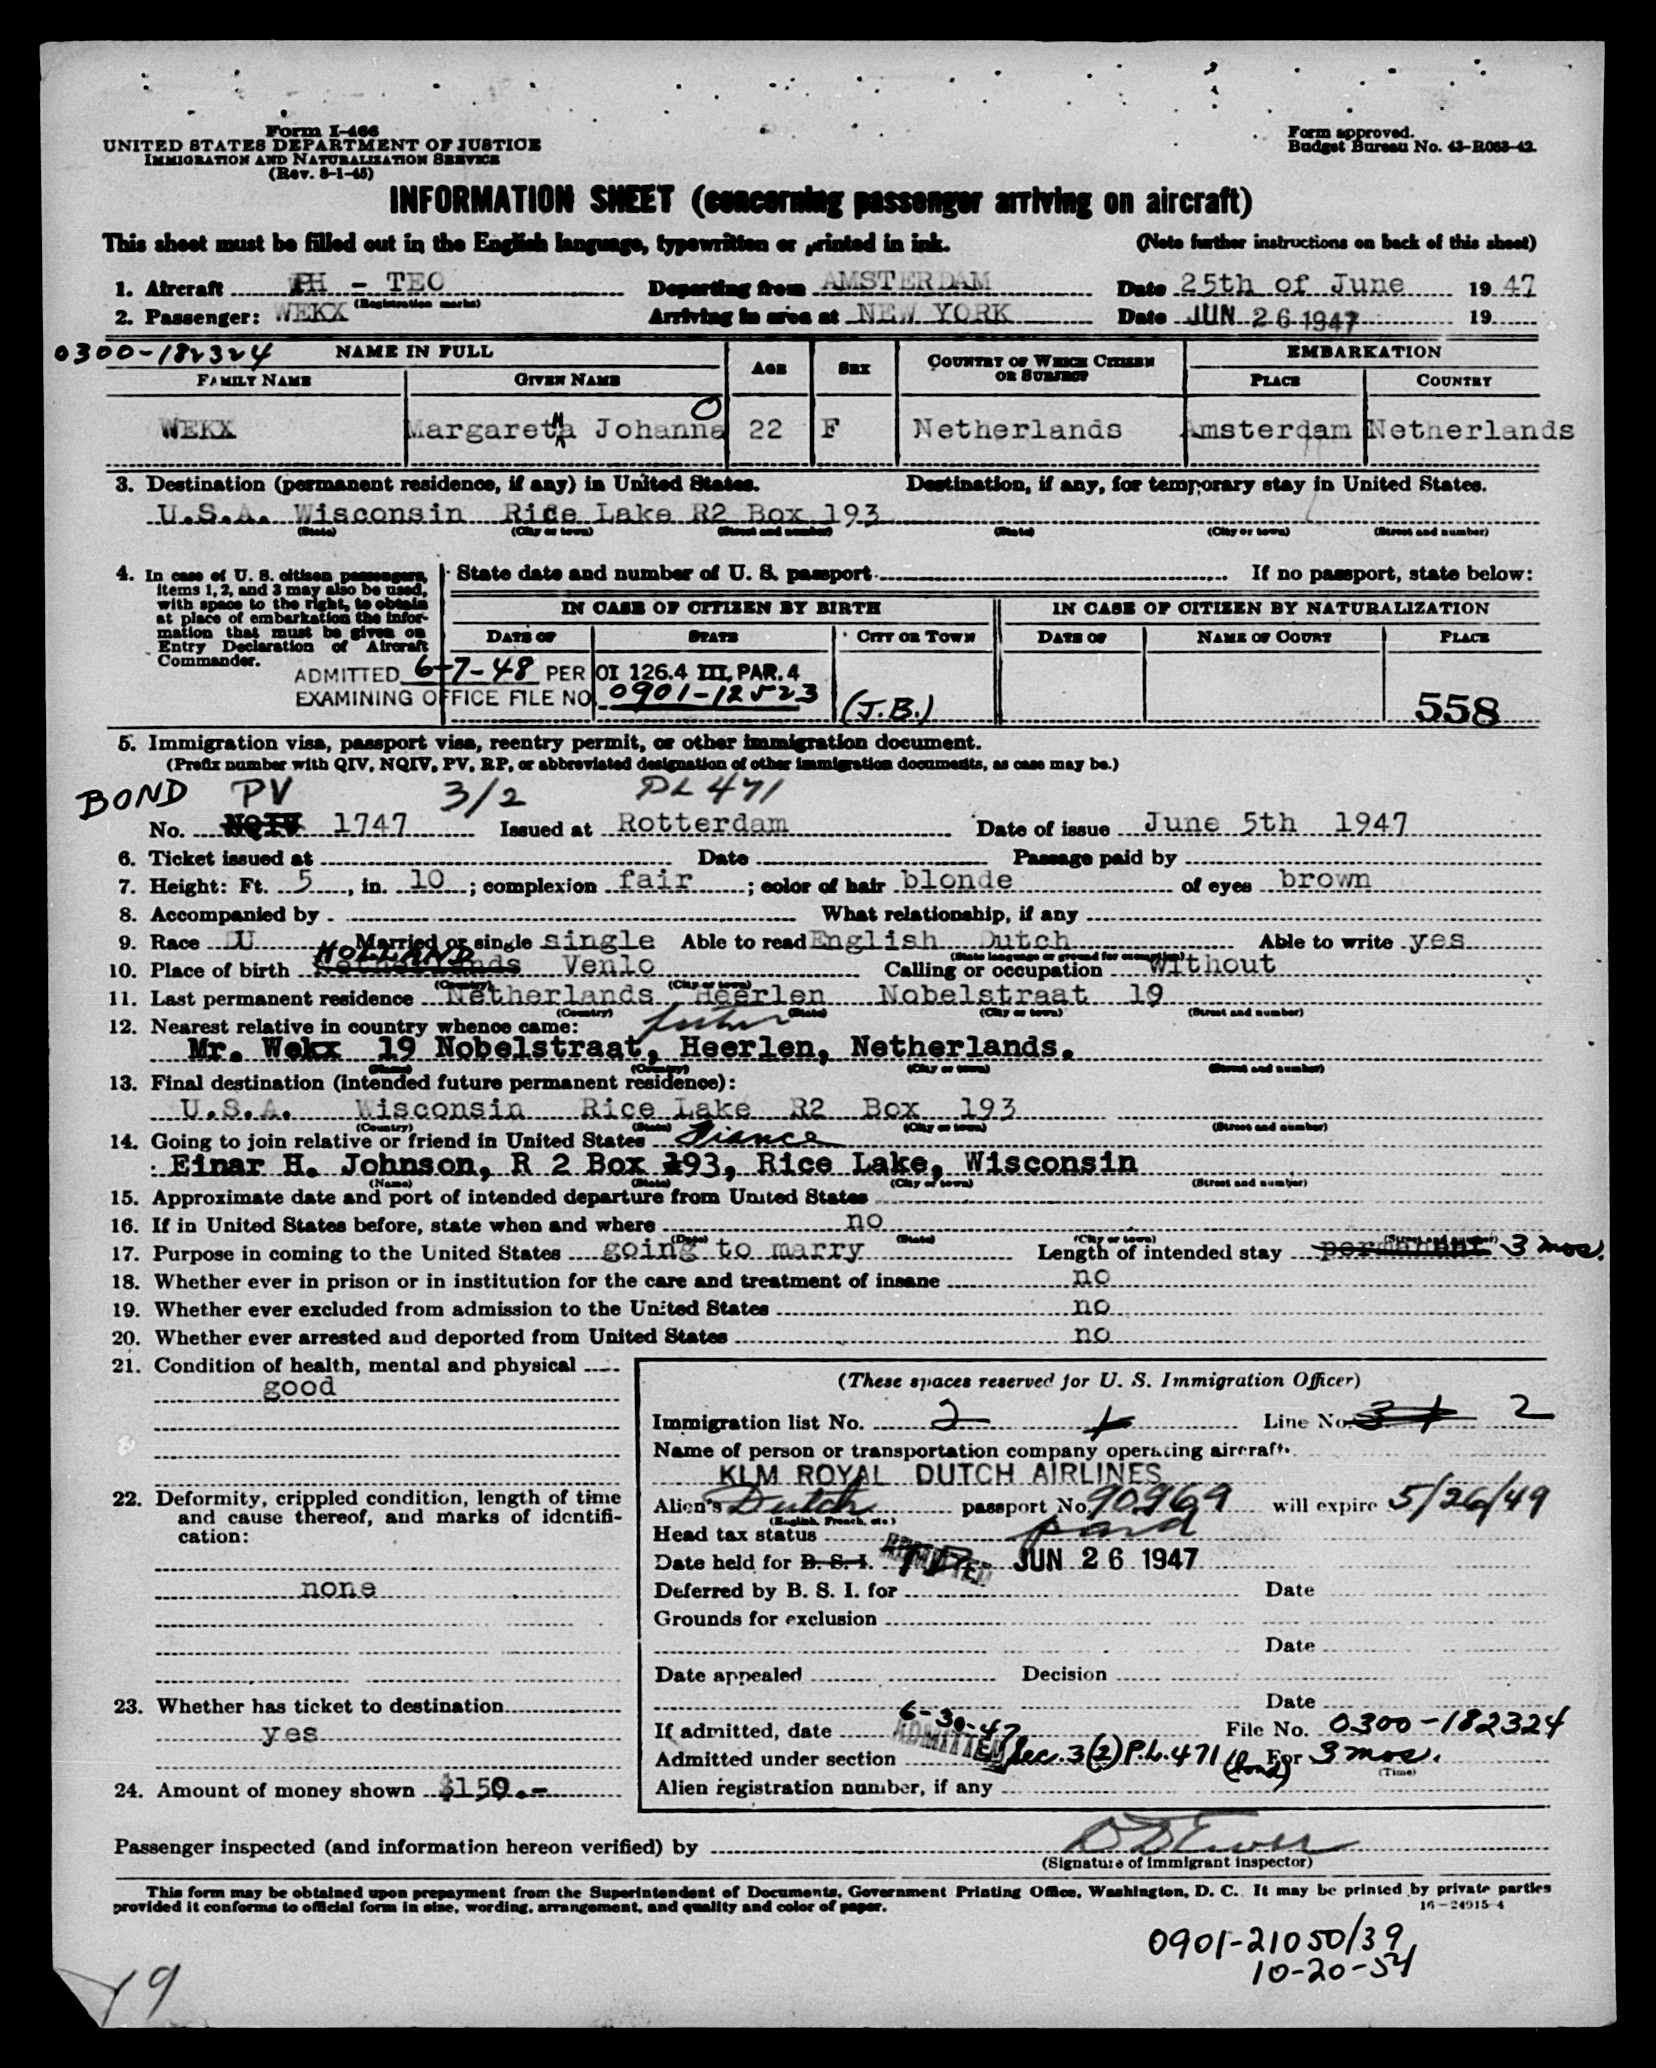 Form I-466
UNITED STATES DEPARTMENT OF JUSTICE
IMMIGRATION AND NATURALIZATION SERVICE
(Rev. 8-1-45)
Form approved.
Budget Bureau No. 43-R083-42.
INFORMATION SHEET (concerning passenger arriving on aircraft)
This sheet must be filled out in the English language, typewritten or printed in ink. (Note further instructions on back of this sheet)
1. Aircraft PH - TEO Departing from AMSTERDAM Date 25th of June 1947
(Registration marks)
2. Passenger: WEKX Arriving in area at NEW YORK Date JUN 26 1947 19
0300-182324 NAME IN FULL AGE SEX COUNTRY OF WHICH CITIZEN OR SUBJECT EMBARKATION
FAMILY NAME GIVEN NAME PLACE COUNTRY
WEKX Margaretha Johanna 22 F Netherlands Amsterdam Netherlands
3. Destination (permanent residence, if any) in United States. Destination, if any, for temporary stay in United States.
U.S.A. Wisconsin Rice Lake R2 Box 193
(State) (City or town) (Street and number) (State) (City or town) (Street and number)
4. In case of U. S. citizen passengers, items 1, 2, and 3 may also be used, with space to the right, to obtain at place of embarkation the information that must be given on Entry Declaration of Aircraft Commander.
State date and number of U. S. passport If no passport, state below:
IN CASE OF CITIZEN BY BIRTH IN CASE OF CITIZEN BY NATURALIZATION
DATE OF STATE CITY OR TOWN DATE OF NAME OF COURT PLACE
ADMITTED 6-7-48 PER OI 126.4 III, PAR. 4
EXAMINING OFFICE FILE NO. 0901-12523 (J.B.) 558
5. Immigration visa, passport visa, reentry permit, or other immigration document.
(Prefix number with QIV, NQIV, PV, RP, or abbreviated designation of other immigration documents, as case may be.)
BOND PV 3/2 PL 471
No. NQIV 1747 Issued at Rotterdam Date of issue June 5th 1947
6. Ticket issued at Date Passage paid by
7. Height: Ft. 5, in. 10; complexion fair; color of hair blonde of eyes brown
8. Accompanied by What relationship, if any
9. Race DU Married or single single Able to read English Dutch Able to write yes
(State language or ground for exemption)
HOLLAND
10. Place of birth Netherlands Venlo Calling or occupation without
(Country) (City or town)
11. Last permanent residence Netherlands Heerlen Nobelstraat 19
(Country) (State) (City or town) (Street and number)
12. Nearest relative in country whence came: father
Mr. Wekx 19 Nobelstraat, Heerlen, Netherlands.
(Name) (Country) (City or town) (Street and number)
13. Final destination (intended future permanent residence):
U.S.A. Wisconsin Rice Lake R2 Box 193
(Country) (State) (City or town) (Street and number)
14. Going to join relative or friend in United States Fiance
Einar H. Johnson, R 2 Box 193, Rice Lake, Wisconsin
(Name) (State) (City or town) (Street and number)
15. Approximate date and port of intended departure from United States
16. If in United States before, state when and where no
(Date) (State) (City or town) (Street and number)
17. Purpose in coming to the United States going to marry Length of intended stay permanent 3 mos.
18. Whether ever in prison or in institution for the care and treatment of insane no
19. Whether ever excluded from admission to the United States no
20. Whether ever arrested and deported from United States no
21. Condition of health, mental and physical
good
22. Deformity, crippled condition, length of time and cause thereof, and marks of identification:
none
23. Whether has ticket to destination
yes
24. Amount of money shown $150.-
(These spaces reserved for U. S. Immigration Officer)
Immigration list No. 2 Line No. 2
Name of person or transportation company operating aircraft
KLM ROYAL DUTCH AIRLINES
Alien's Dutch passport No. 90969 will expire 5/26/49
(English, French, etc.)
Head tax status paid
Date held for B. S. I. ADMITTED JUN 26 1947
Deferred by B. S. I. for Date
Grounds for exclusion
Date
Date appealed Decision
Date
If admitted, date 6-30-47 File No. 0300-182324
ADMITTED
Admitted under section Sec. 3(2) P.L. 471 (bond) For 3 mos.
(Time)
Alien registration number, if any
Passenger inspected (and information hereon verified) by
(Signature of immigrant inspector)
This form may be obtained upon prepayment from the Superintendent of Documents, Government Printing Office, Washington, D. C. It may be printed by private parties
provided it conforms to official form in size, wording, arrangement, and quality and color of paper. 16-24915-4
0901-21050/39
10-20-54
19